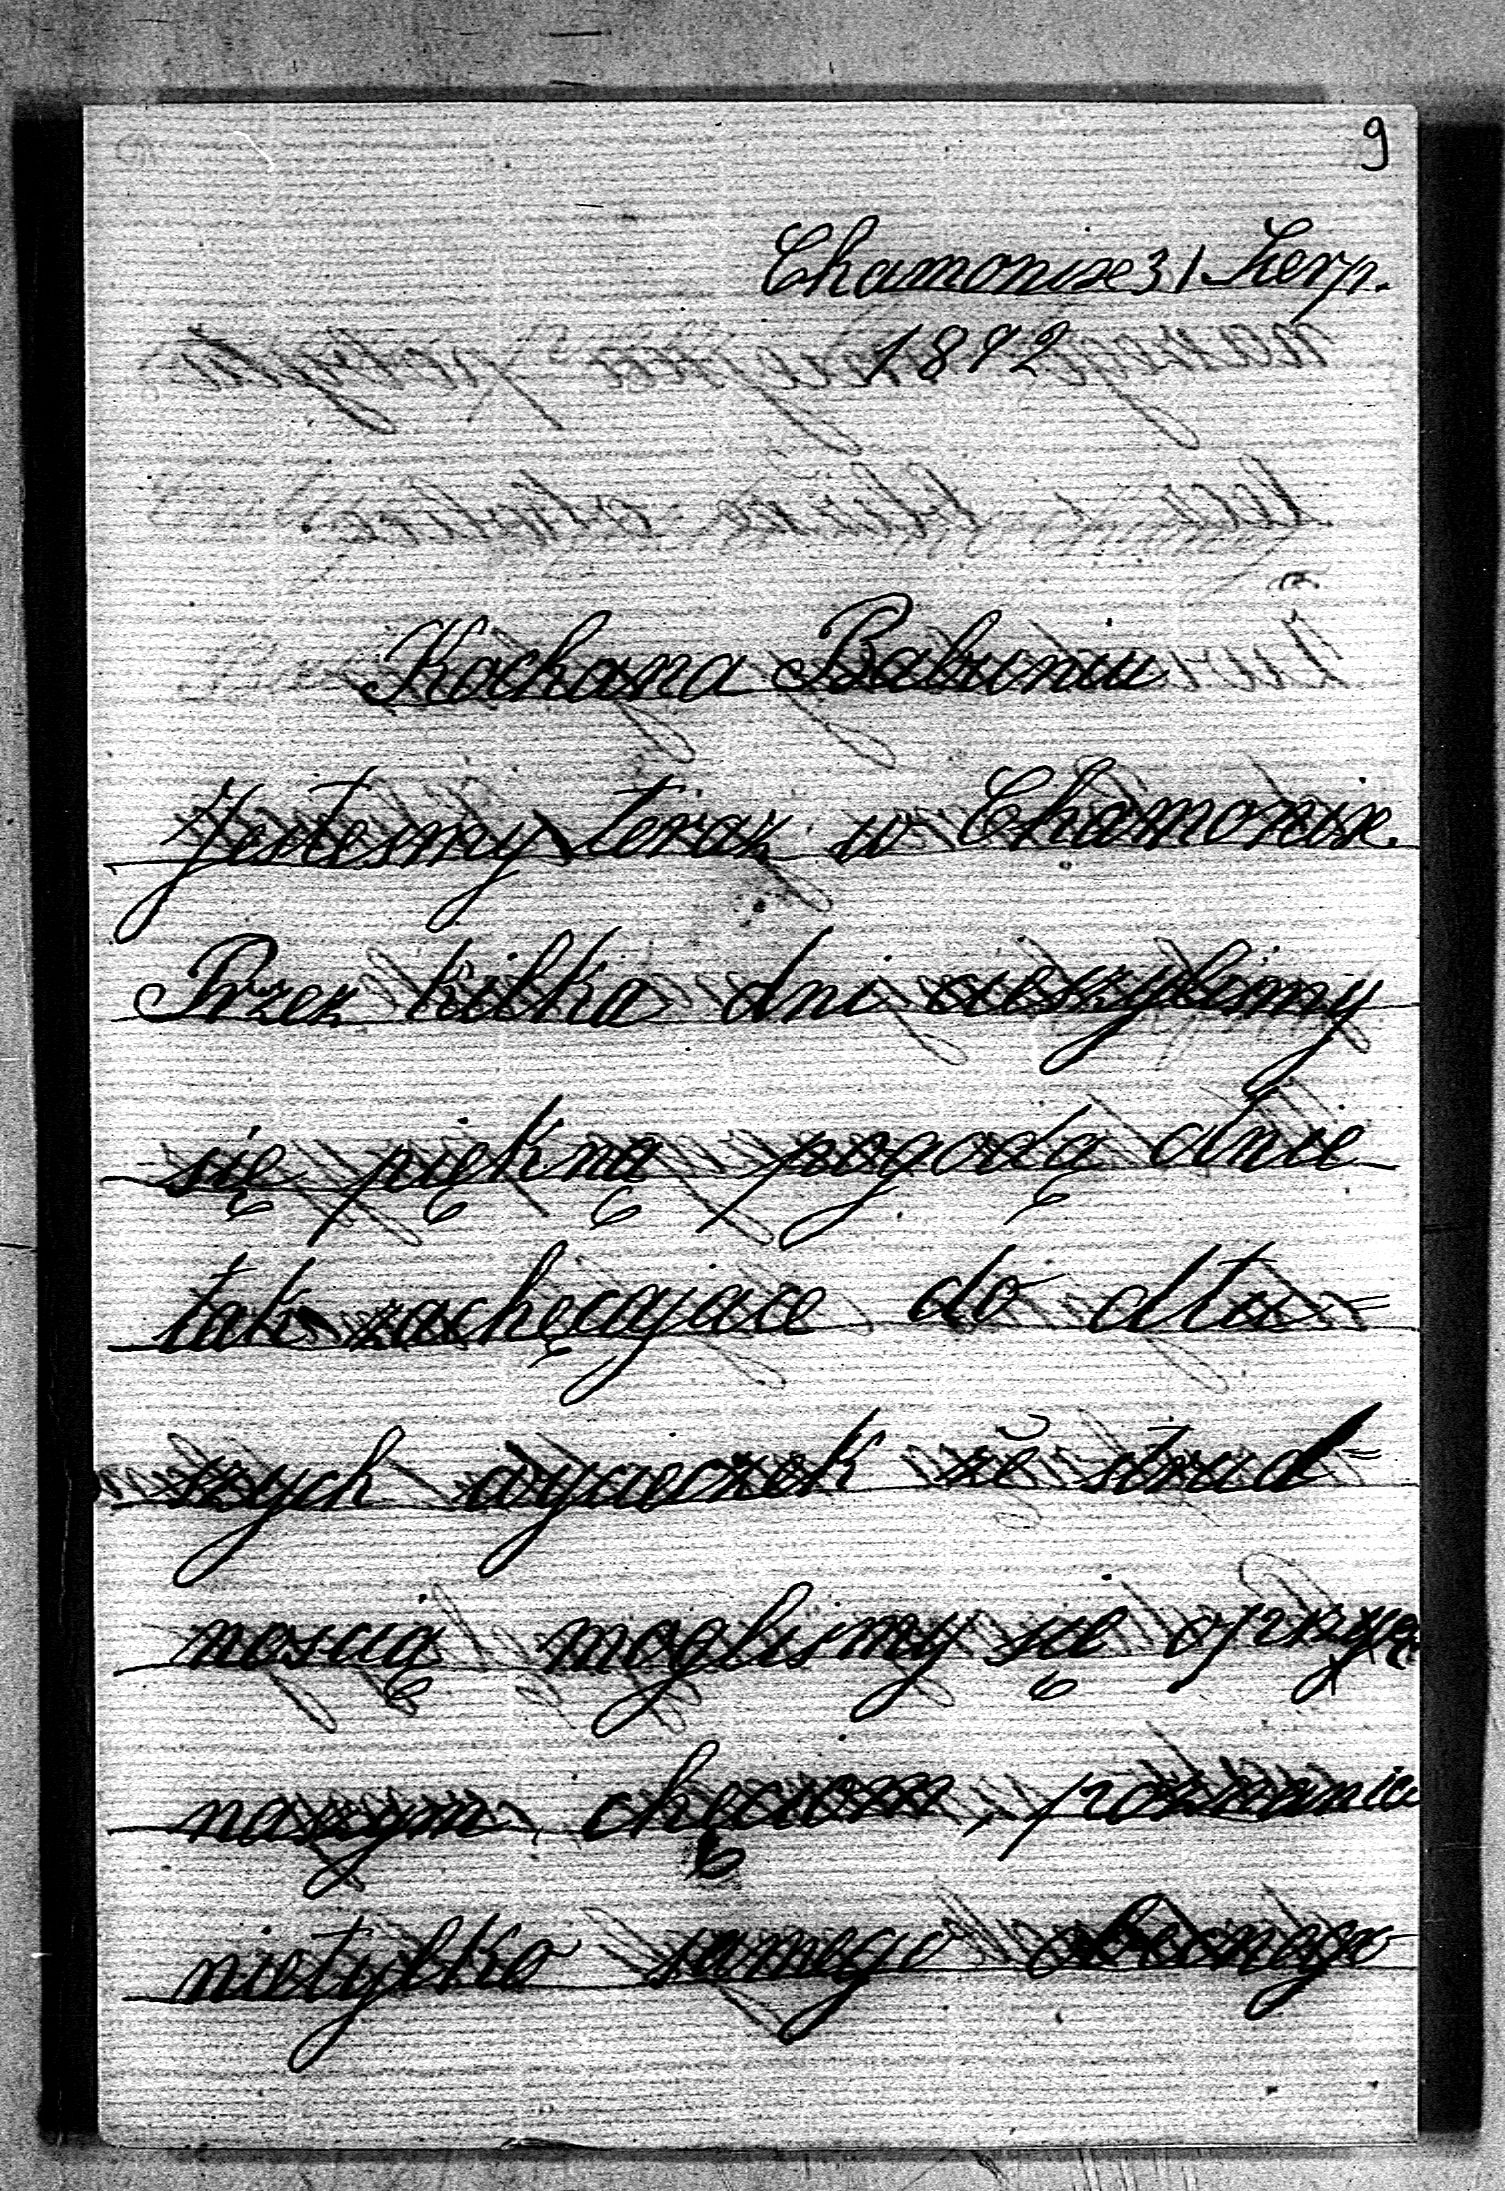 9
Chamonix 31 Sierp.
1892
Kochana Babuniu
Jestesmy teraz w Chamonix.
Przez kilka dni cieszylismy
się piękną pogodą dnie
tak zachęcajace do dłu=
szych wycieczek że z trud=
noscią moglismy się oprzeć
naszym chęciom, poznanie
nietylko samego obecnego